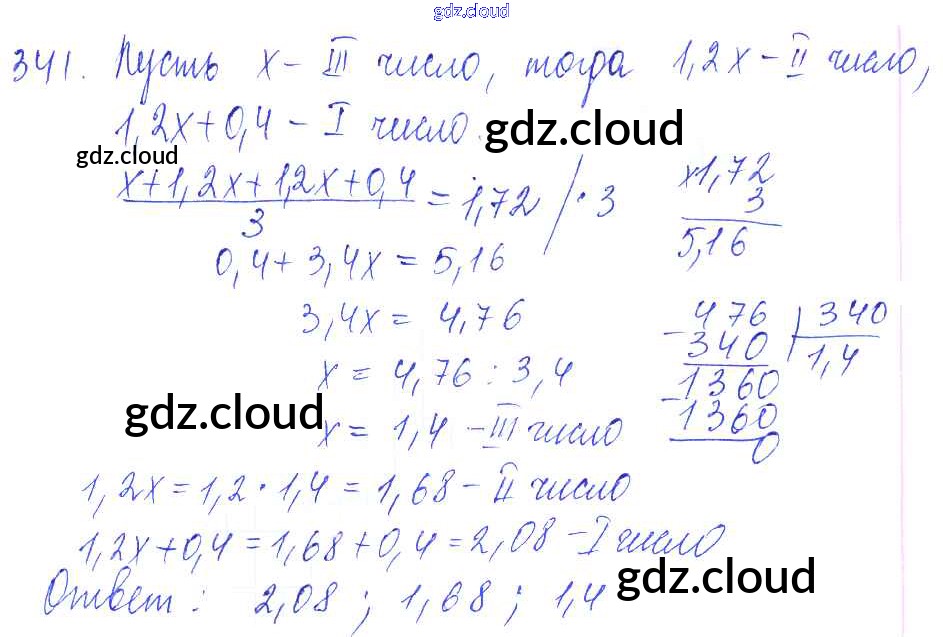 gdz.cloud
341. Пусть x – III число, тогда 1,2x – II число,
1,2x+0,4 – I число.
gdz.cloud
gdz.cloud
x+1,2x+1,2x+0,4 / 3 = 1,72 / · 3
×1,72
3
5,16
0,4+3,4x = 5,16
3,4x = 4,76
x = 4,76 : 3,4
x = 1,4 – III число
476 | 340
– 340 | 1,4
1360
– 1360
0
gdz.cloud
1,2x = 1,2 · 1,4 = 1,68 – II число
1,2x+0,4 = 1,68+0,4 = 2,08 – I число
Ответ: 2,08 ; 1,68 ; 1,4
gdz.cloud